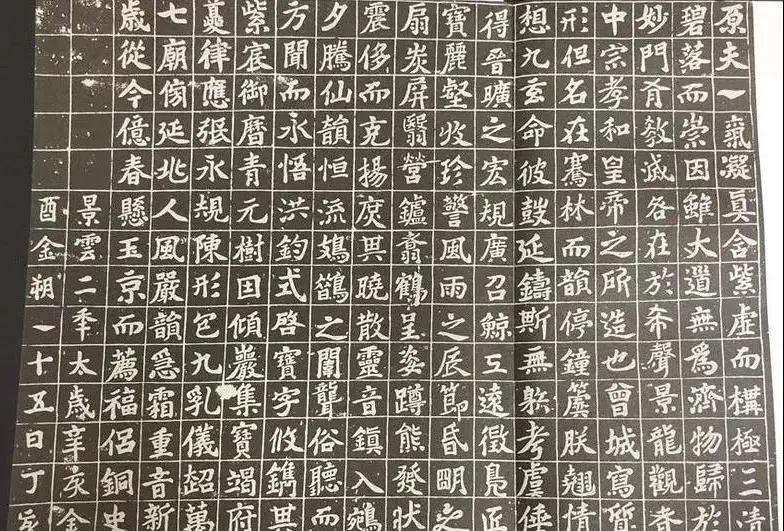 原夫一氣凝真含紫虛而構極三清
碧落而崇因雖大道無為濟物歸於
妙門有教誡咎在於希聲景龍觀者
中宗孝和皇帝之所造也曾城寫質
形但名在騫林而韻停鐘虡朕翹情
想九玄命彼鼓延鑄斯無射考虞倕
得晉曠之宏規廣召鯨工遠徵鳧匠
寶麗壑收珍警風雨之辰節昏明之
扇炭屏翳營鑪翥鶴呈姿蹲熊發狀
震侈而克揚庶其曉散靈音鎮入鵷
夕騰仙韻恒流鳷鵲之闈聾俗聽而
方聞而永悟洪鈞式啓寶字攸鐫
紫宸御曆青元樹因傾巖集寶竭府
夔律應張永規陳形包九乳儀超萬
七廟傍延兆人風嚴韻急霜重音新
歲從今億春懸玉京而薦福侶銅史
景雲二年太歲辛亥金
酉金朔一十五日丁亥